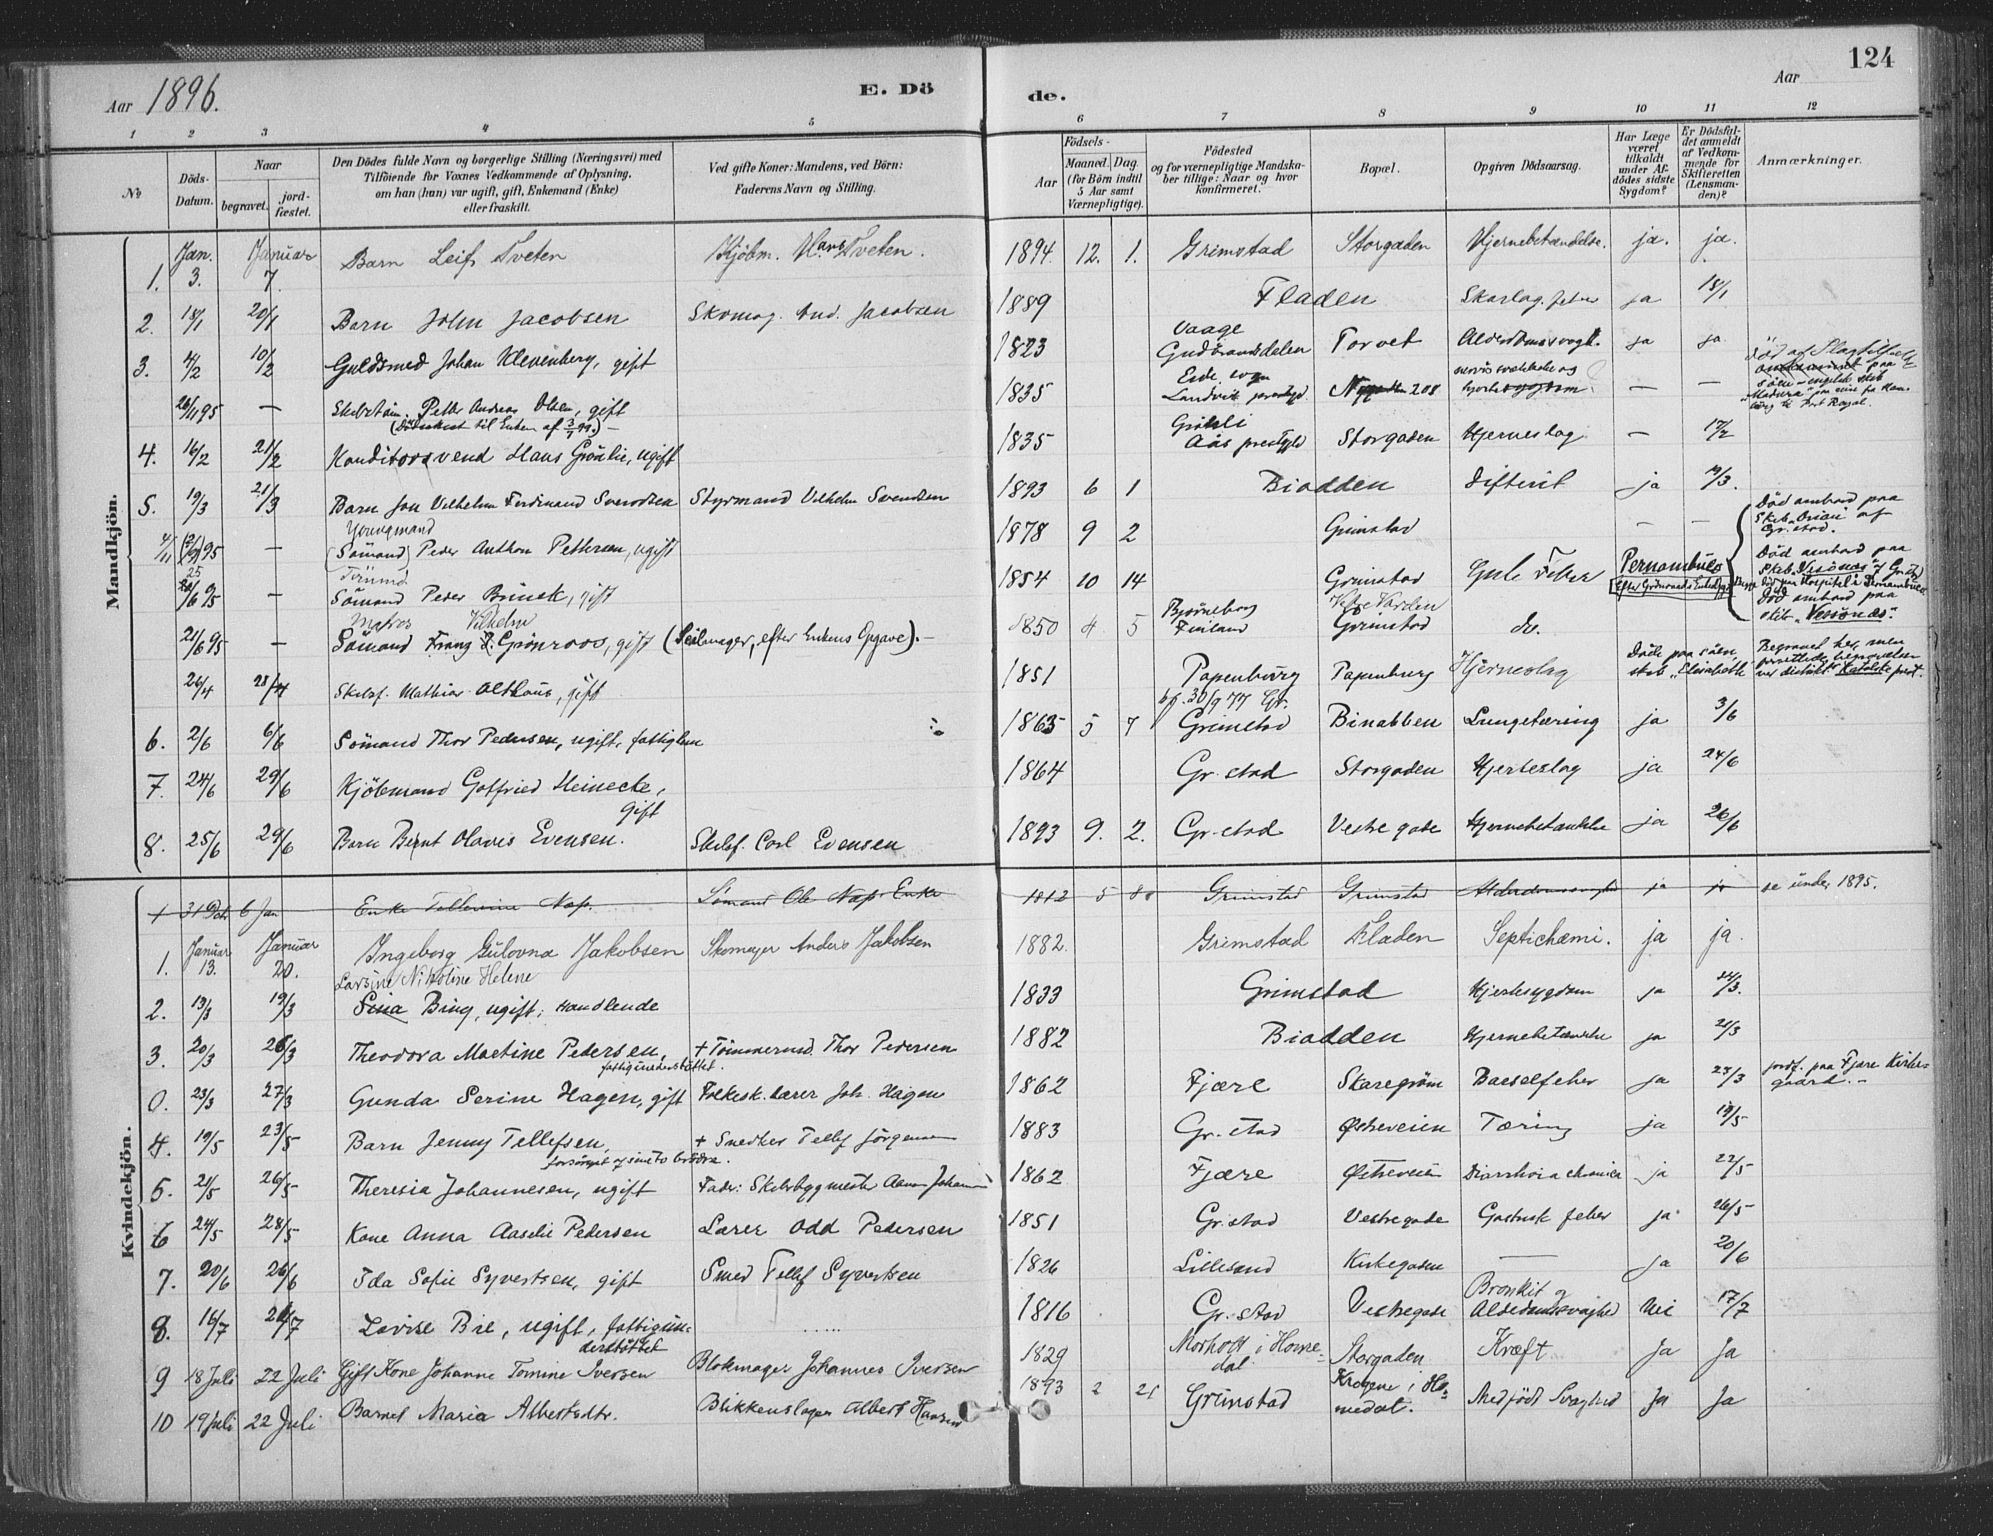 124
Aar 1896.
E. Dö
de.
Aar
1 2 3 4 5 6 7 8 9 10 11 12
No
Döds-Datum.
Naar
begravet.
jord-fæstet.
Den Dödes fulde Navn og borgerlige Stilling (Næringsvei) med
Tilföiende for Voxnes Vedkommende af Oplysning,
om han (hun) var ugift, gift, Enkemand (Enke)
eller fraskilt.
Ved gifte Koner: Mandens, ved Börn:
Faderens Navn og Stilling.
Födsels-
Aar
Maaned. Dag.
(for Börn indtil
5 Aar samt
Værnepligtige).
Födested
og for værnepligtige Mandska-
ber tillige: Naar og hvor
konfirmeret.
Bopæl.
Opgiven Dödsaarsag.
Har Læge
været
tilkaldt
under Af-
dödes sidste
Sygdom?
Er Dödsfal-
det anmeldt
af Vedkom-
mende for
Skifteretten
(Lensman-
den)?
Anmærkninger.
Mandkjön.
1. Jan. 3. Januar 7. Barn Leif Tveten Kjöbm. Hans Tveten. 1894 12. 1. Grimstad Storgaden Hjernebetændelse. ja. ja.
2. 15/1 20/1 Barn John Jacobsen Skomag. And. Jacobsen 1889 Fladen Skarlag. feber ja 18/1
3. 4/2 10/2 Guldsmed Johan Klevenberg, gift 1823 Vaage Gudbrandsdalen Torvet Alderdomssvagh. ja ja
26/11 95 — Skibstöm. Peter Andreas Olsen, gift 1835 Eide sogn Landvik 208 — — Död af Slagtilfælde
(Dödsattest til Enken af 3/7 99.) —
4. 16/2 21/2 Konditorsvend Hans Grölie, ugift 1835 Grölli Aas prestgjd Storgaden Hjerneslag — 17/2
5. 19/3 21/3 Barn Jon Vilhelm Ferdinand Svendsen Styrmand Vilhelm Svendsen 1893 6 1 Biodden Difterit ja 19/3.
Youngmand
95 — (Sömand) Peder Anthon Pettersen, ugift 1878 9 2 Grimstad — — Död ombord paa Skib "Orion" af Gr. stad.
Tömmermd
25/6 95 — Sömand Peder Brinck, gift 1854 10 14 Grimstad Gul Feber Pernambuco Död ombord paa Skib
Matros Vilhelm
21/6 95 — Sömand Franz Grönroos, gift (Seilmager, efter Enkens Opgave). — 1850 4 5 Bjørneborg Finland Grimstad do. Död ombord paa skib
26/4 28/4 Skibsf. Mathias Althaus, gift 1851 Papenburg Papenburg Hjerneslag Döde paa söen, skib "Elisabeth" Begravet her, men katolske prest.
6. 2/6 6/6 Sömand Thor Pedersen, ugift, fattiglem 1865 5 7 Grimstad Binabben Lungetæring ja 3/6
7. 24/6 29/6 Kjöbmand Gotfried Heinecke, gift 1864 Gr. stad Storgaden Hjerteslag ja 24/6
8. 25/6 29/6 Barn Bernt Olavis Evensen. Skibsf. Carl Evensen 1893 9. 2. Gr. stad Vestregade Hjernebetændelse ja 26/6
Kvindekjön.
1 31 Dec 6 Jan Enke Tellevine Næs. Sömand Ole Næs Enke 1812 5 Grimstad Grimstad Alderdomssvaghed ja ja se under 1895.
1. Januar 13. Januar 20. Ingeborg Gulovna Jakobsen Skomager Anders Jakobsen 1882 Grimstad Fladen Septichæmi. ja ja.
Larsine Nikoline Helene
2. 13/3 19/3 Sina Bing, ugift, Handlende 1833 Grimstad Hjertesygdom ja 14/3.
3. 20/3 26/3 Theodora Martine Pedersen, fattigunderstöttet. + Tömmermd. Thor Pedersen 1882 Biodden Hjernebetændelse ja 21/3
0. 23/3 27/3 Gunda Serine Hagen, gift Folkesk. lærer Joh. Hagen 1862 Fjære Skaregröm Barselfeber ja 25/3 jordf. paa Fjære Kirke-gaard. —
4. 19/5 23/5 Barn Jenny Tellefsen, + Snedker Tellef Jörgensen 1883 Gr. stad Østreveien Tæring ja 19/5
forsörget af sine to brödre.
5. 21/5 26/5 Theresia Johannesen, ugift Fader: Skibsbygmester 1862 Fjære Østreveien Diarrhoia chronica ja 22/5
6 24/5 28/5 Kone Anna Aaselie Pedersen Lærer Odd Pedersen 1851 Gr. stad Vestregade Gastrisk feber ja 26/5
7. 20/6 26/6 Ida Sofie Syvertsen, gift Smed Tellef Syvertsen 1826 Lillesand Kirkegaden — ja 20/6
8. 16/7 Lovise Bie, ugift, fattigun-derstöttet 1816 Gr. stad Vestregade Bronkit og Alderdomssvaghed Nei 17/7
9 18 Juli 22 Juli Gift Kone Johanne Tomine Iversen Blokmager Johannes Iversen 1829 Morholt i Home-dal Storgaden Kræft Ja Ja
10 19 Juli 22 Juli Barnet Maria Albertsdtr. Blikkenslager Albert Hansen 1893 2 21 Grimstad i Ho-medal. Medfödt Svaghed Ja Ja